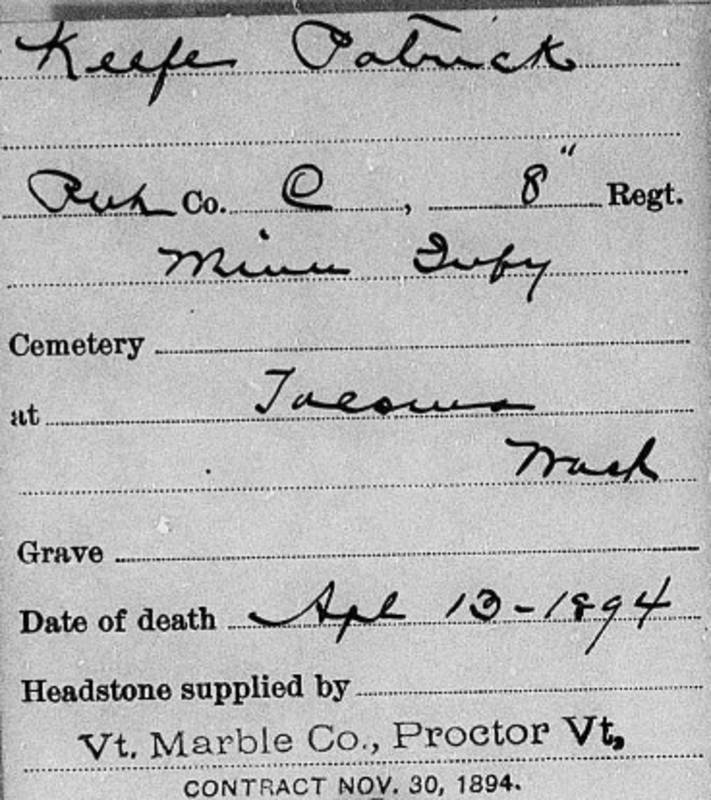 Keefe Patrick
Co. C, 8" Regt.
Minn Infy
Cemetery
at Tacoma
Wash
Grave
Date of death Apl 13-1894
Headstone supplied by
Vt. Marble Co., Proctor Vt,
CONTRACT NOV. 30, 1894.